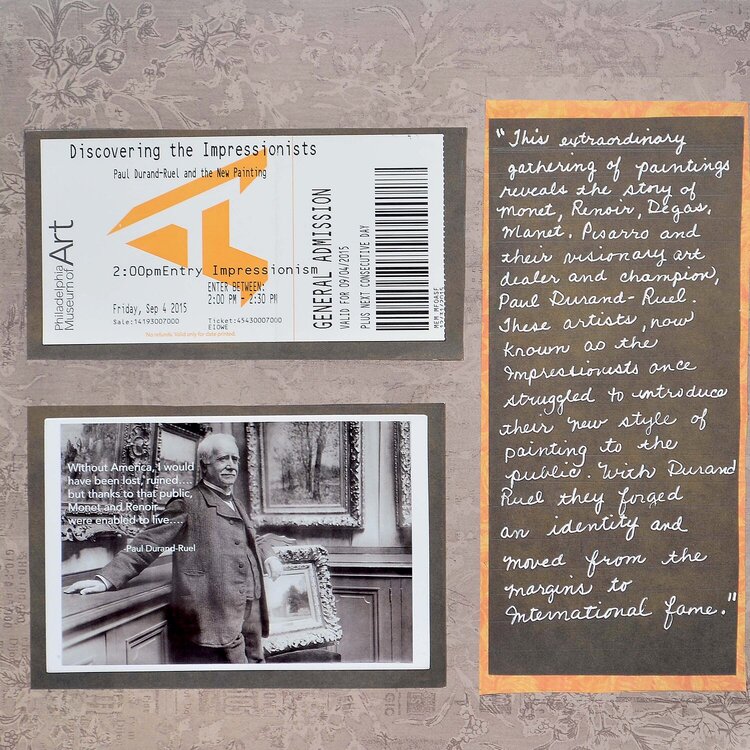 Discovering the Impressionists
Paul Durand-Ruel and the New Painting
Philadelphia
Museum of Art
2:00pmEntry Impressionism
ENTER BETWEEN:
2:00 PM - 2:30 PM
Friday, Sep 4 2015
Sale:14193007000
Ticket:45430007000
EIOWE
No refunds. Valid only for date printed.
GENERAL ADMISSION
VALID FOR 09/04/2015
PLUS NEXT CONSECUTIVE DAY
Without America, I would
have been lost, ruined....
but thanks to that public,
Monet and Renoir
were enabled to live....
-Paul Durand-Ruel
"This extraordinary
gathering of paintings
reveals the story of
Monet, Renoir, Degas,
Manet. Pisarro and
their visionary art
dealer and champion,
Paul Durand-Ruel.
These artists, now
known as the
Impressionists once
struggled to introduce
their new style of
painting to the
public. With Durand
Ruel they forged
an identity and
moved from the
margins to
International fame."